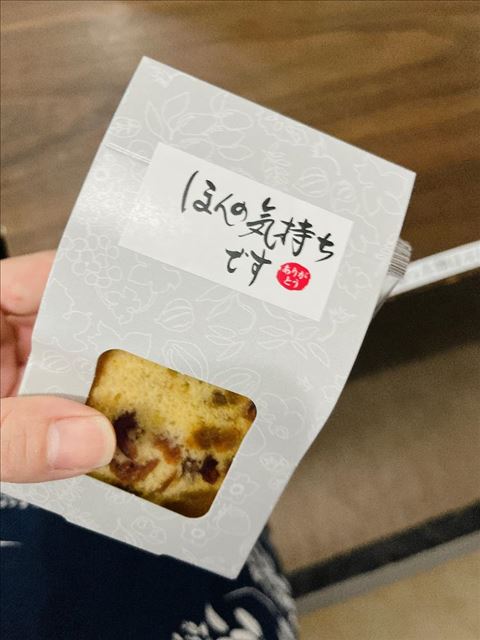 ほんの気持ち
です
ありが
とう